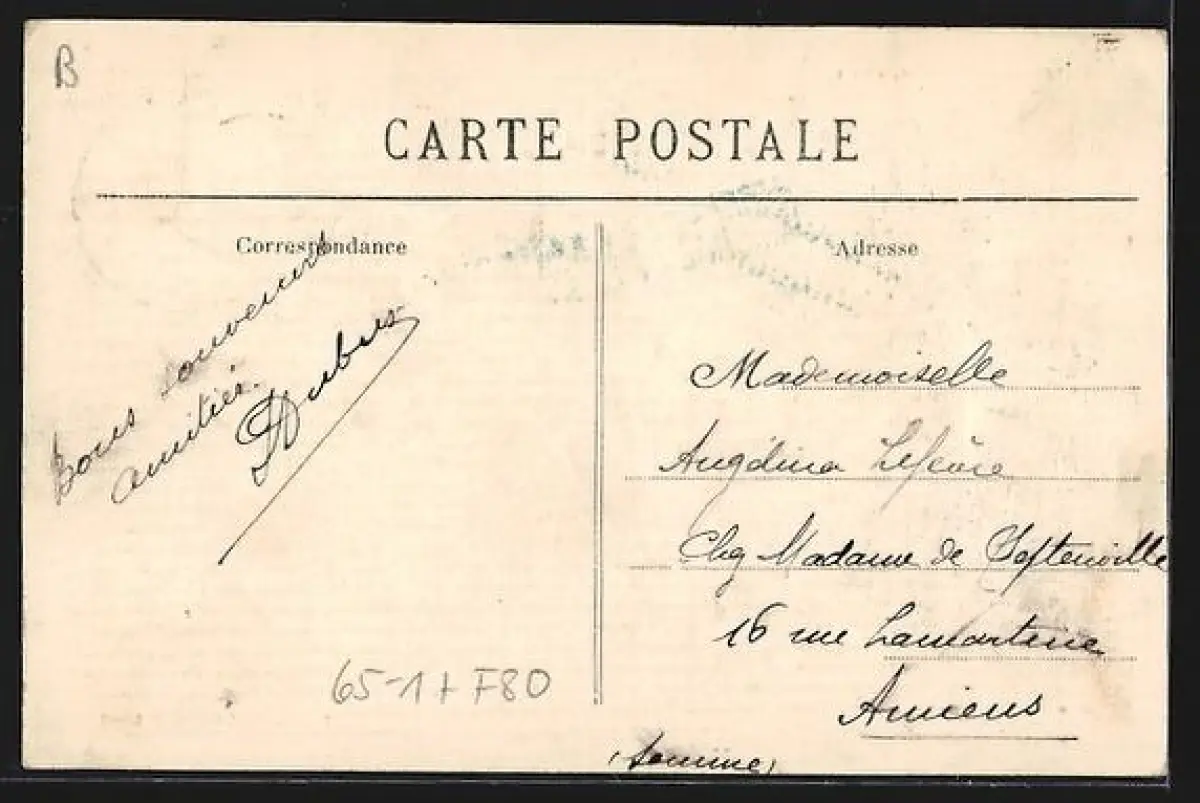 B
CARTE POSTALE
Correspondance
Bons souvenirs
amitiés.
Dubus
Adresse
Mademoiselle
Angélina Lefèvre
Chez Madame de
16 rue Lamartine
Amiens
(Somme)
65-17 F80